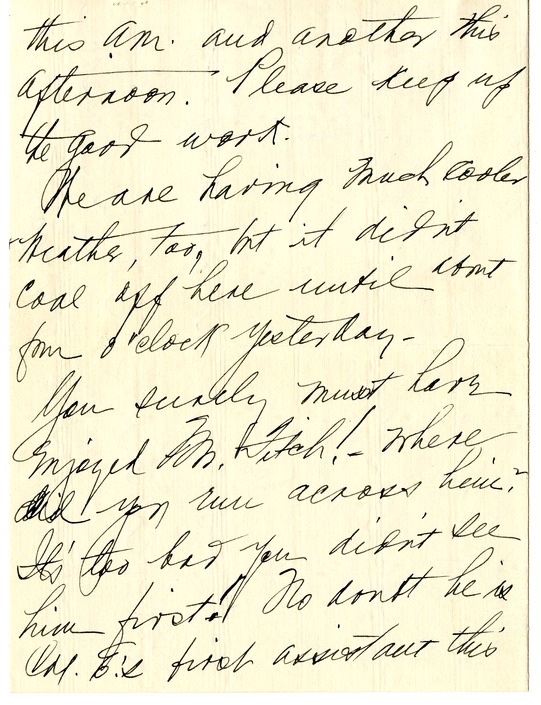 this am. and another this
afternoon. Please keep up
the good work.
We are having much cooler
weather, too, but it didn't
cool off here until about
four o'clock yesterday-
You surely must have
enjoyed Mr. Fitch!- Where
did you run across him?
It's too bad you didn't see
him first! No doubt he is
Col. B.'s first assistant this